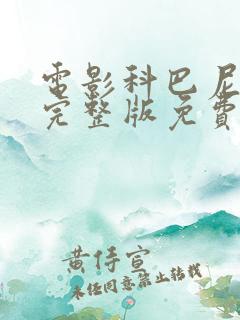 电影科巴尼
完整版免费
黄侍宣
未经同意禁止转载